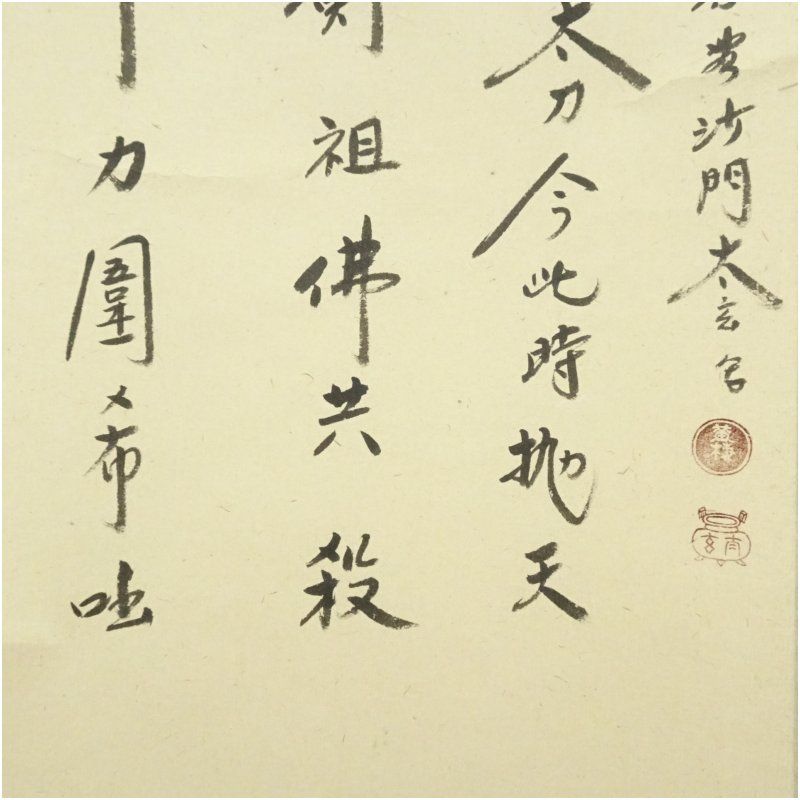 力圍希咄
祖佛共殺
太刀今此時抛天
沙門太玄
黄梅